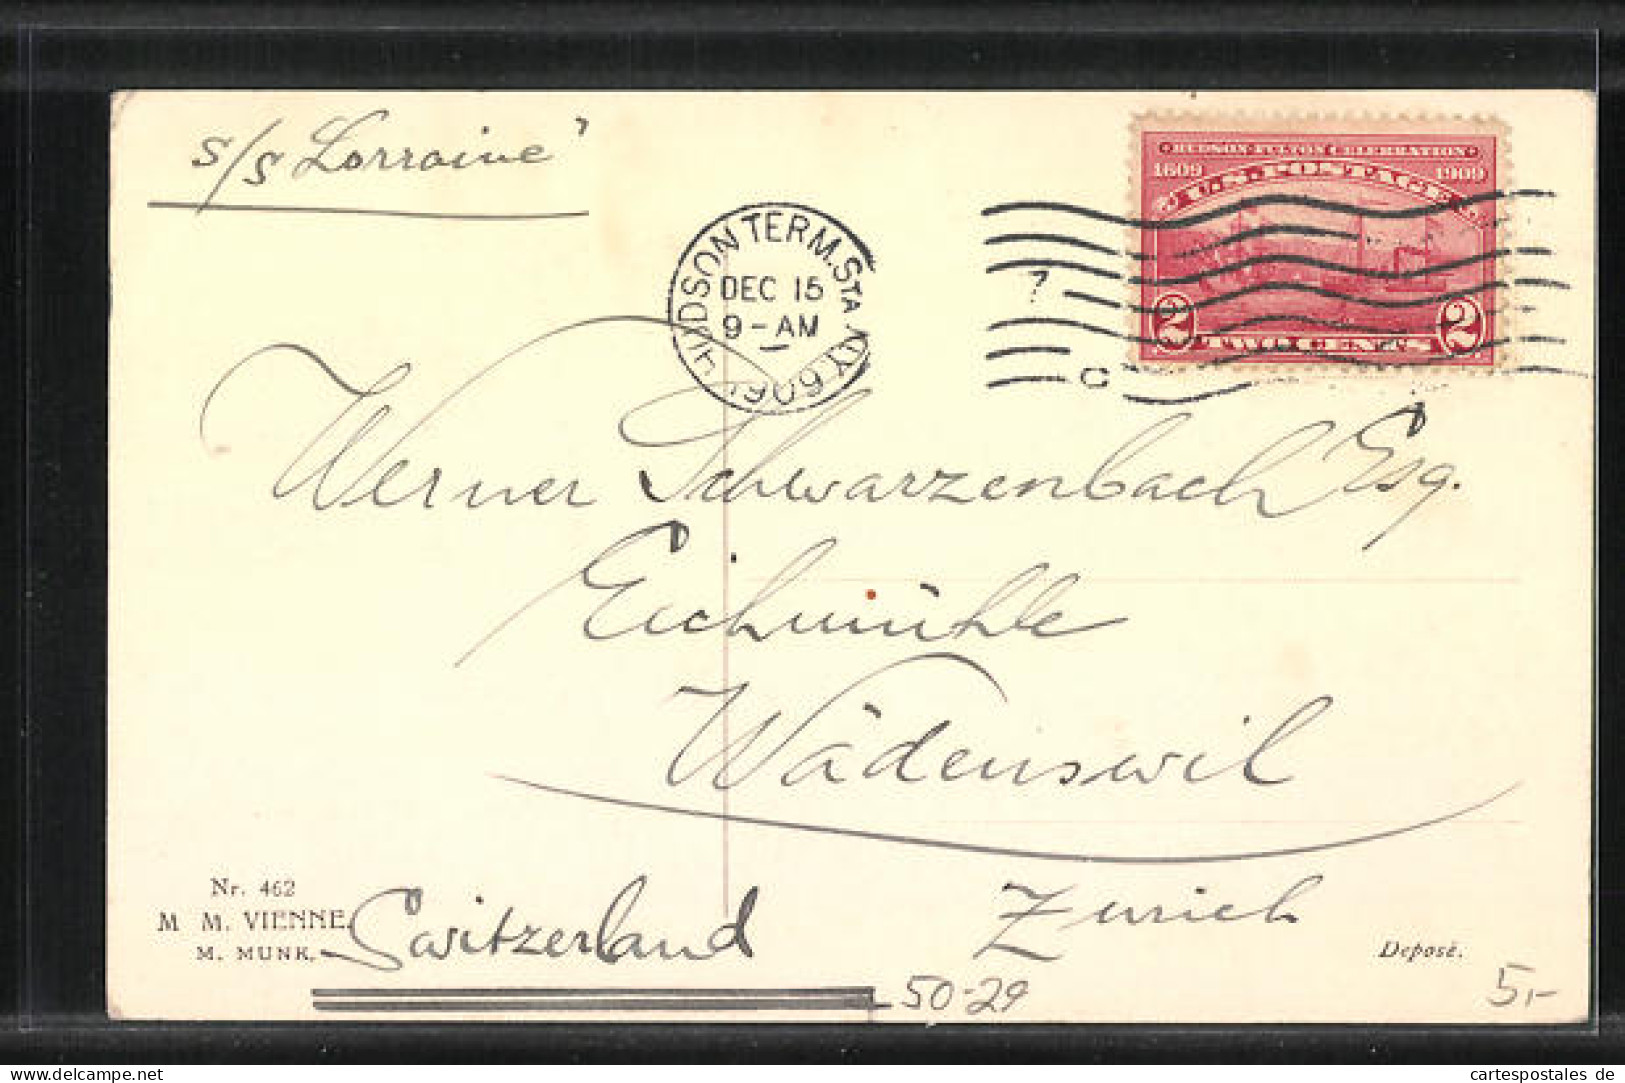 s/s Lorraine"
HUDSON-FULTON CELEBRATION
1609 1909
U.S. POSTAGE
2 2
TWO CENTS
HUDSON TERM. STA
DEC 15
9-AM
1909
N.Y.
Werner Schwarzenbach Esq.
Eichmühle
Wädenswil
Zürich
Switzerland
Nr. 462
M. M. VIENNE.
M. MUNK.
Deposé.
50-29
5,-
cartespostales de